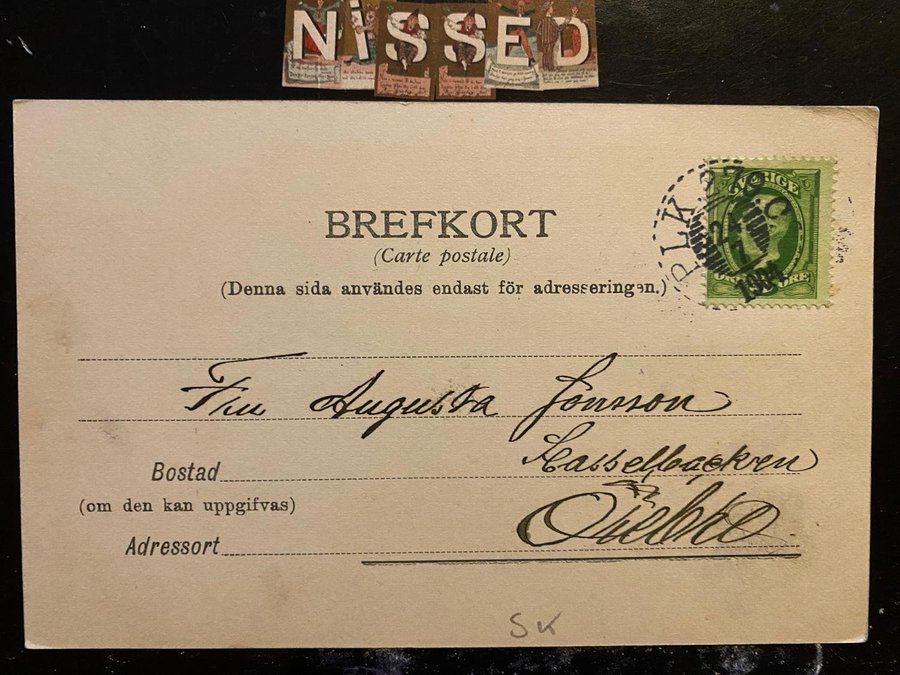 NiSSED
BREFKORT
(Carte postale)
(Denna sida användes endast för adresseringen.)
PLK 279 C
1904
SVERIGE
Fru Augusta Jonsson
Hasselbacken
Bostad
(om den kan uppgifvas)
Örebro
Adressort
SK